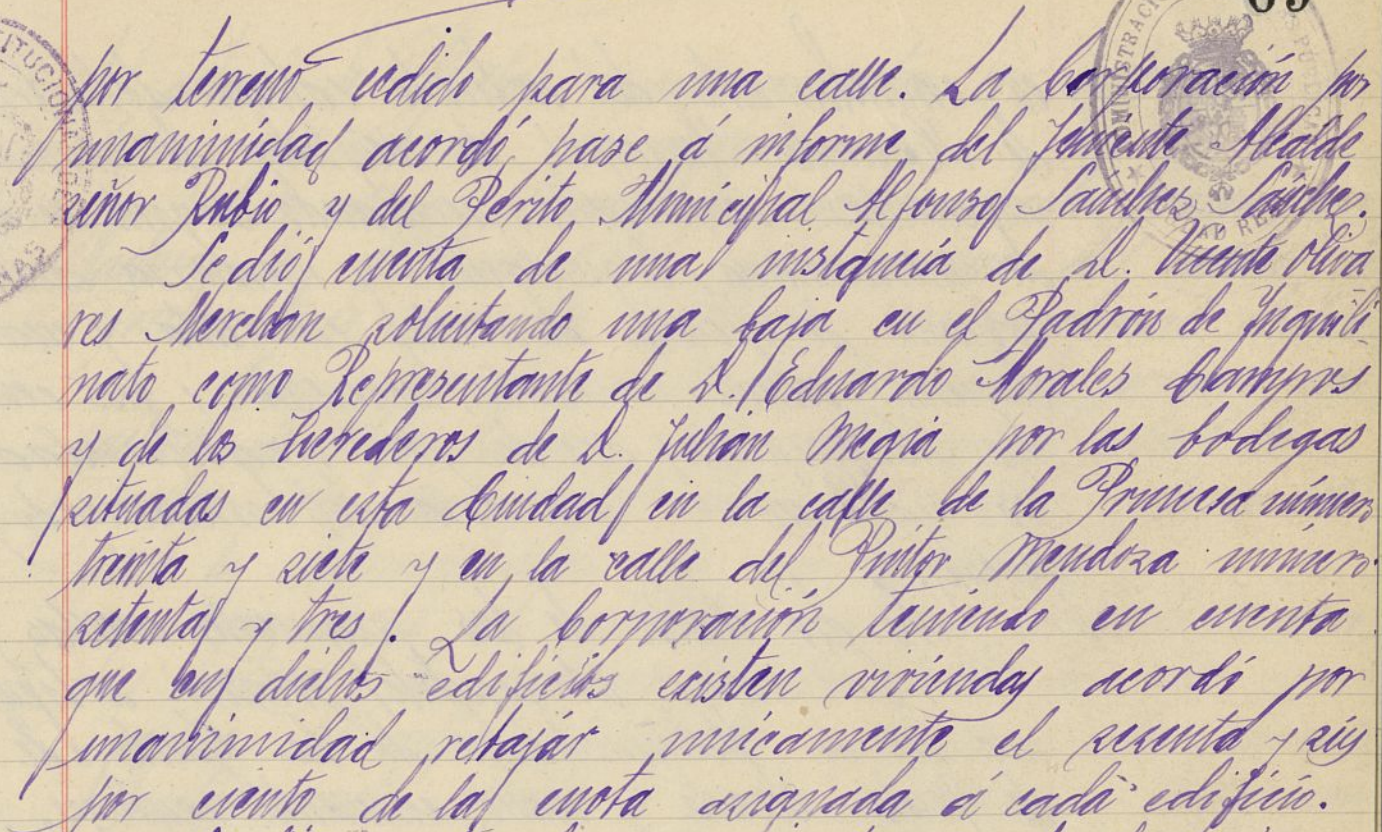 69
por terreno cedido para una calle. La Corporación por
unanimidad acordó, pase á informe del Teniente Alcalde
señor Rubio y del Perito Municipal Alfonso Sanchez Sanchez.
Se dió cuenta de una instancia de D. Vicente Oliva
res Merchan solicitando una baja en el Padrón de Inquili-
nato como Representante de D. Eduardo Morales Campos
y de los herederos de D. Julian Megia por las bodegas
situadas en esta Ciudad en la calle de la Princesa número
treinta y siete y en la calle del Pintor Mendoza número
setenta y tres. La Corporación teniendo en cuenta
que en dichos edificios existen viviendas acordó por
unanimidad rebajár unicamente el sesenta y seis
por ciento de la cuota asignada á cada edificio.